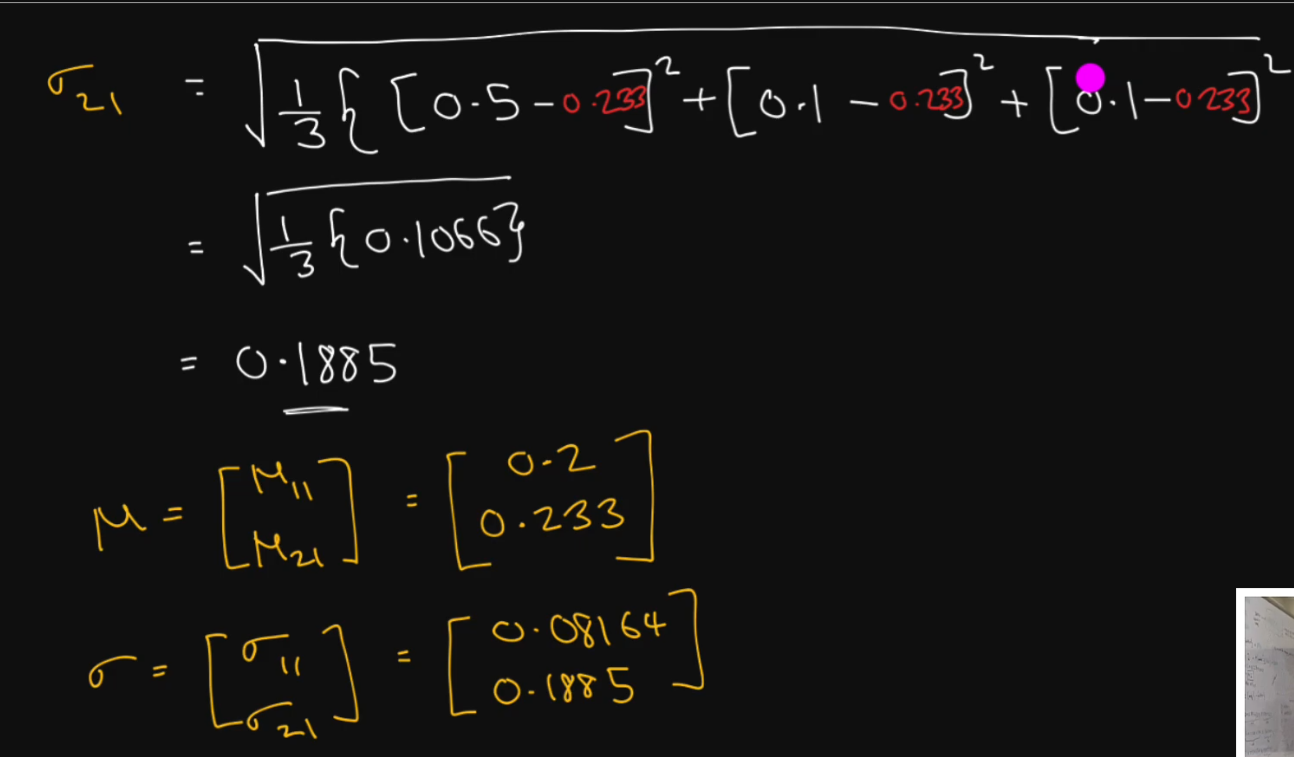 σ₂₁ = √(1/3 { [0.5 - 0.233]² + [0.1 - 0.233]² + [0.1 - 0.233]²
= √(1/3 {0.1066})
= 0.1885
μ = [μ₁₁ μ₂₁] = [0.2 0.233]
σ = [σ₁₁ σ₂₁] = [0.08164 0.1885]